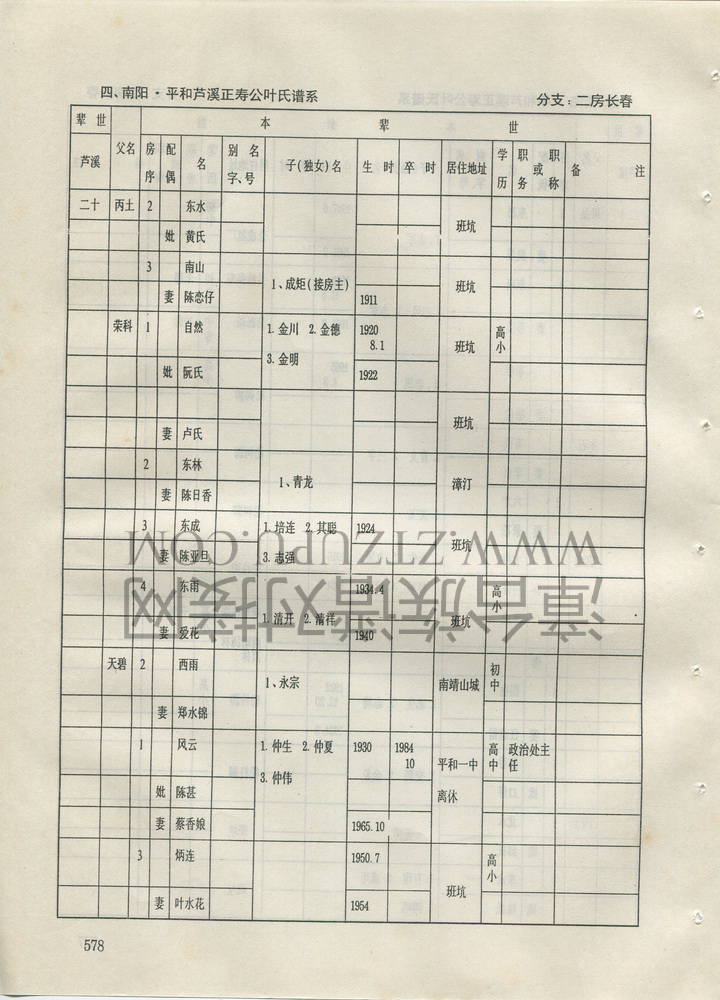 四、南阳·平和芦溪正寿公叶氏谱系 分支：二房长春
辈世 本辈世
芦溪 父名 房序 配偶 名 别名字、号 子(独女)名 生时 卒时 居住地址 学历 职务或职称 备注
二十 丙土 2 东水 班坑
妣 黄氏
3 南山 1、成炬(接房主) 班坑
妻 陈恋仔 1911
荣科 1 自然 1.金川 2.金德 3.金明 1920 8.1 班坑 高小
妣 阮氏 1922
班坑
妻 卢氏
2 东林 1、青龙 漳汀
妻 陈日香
3 东成 1.培连 2.其聪 3.志强 1924 班坑
妻 陈亚旦
4 东雨 1.清开 2.清祥 1934.4 班坑 高小
妻 爱花 1940
天碧 2 西雨 1、永宗 南靖山城 初中
妻 郑水锦
1 风云 1.仲生 2.仲夏 3.仲伟 1930 1984 10 平和一中离休 高中 政治处主任
妣 陈甚
妻 蔡香娘 1965.10
3 炳连 1950.7 班坑 高小
妻 叶水花 1954
578
WWW.ZTZUPU.COM
漳台族谱对接网